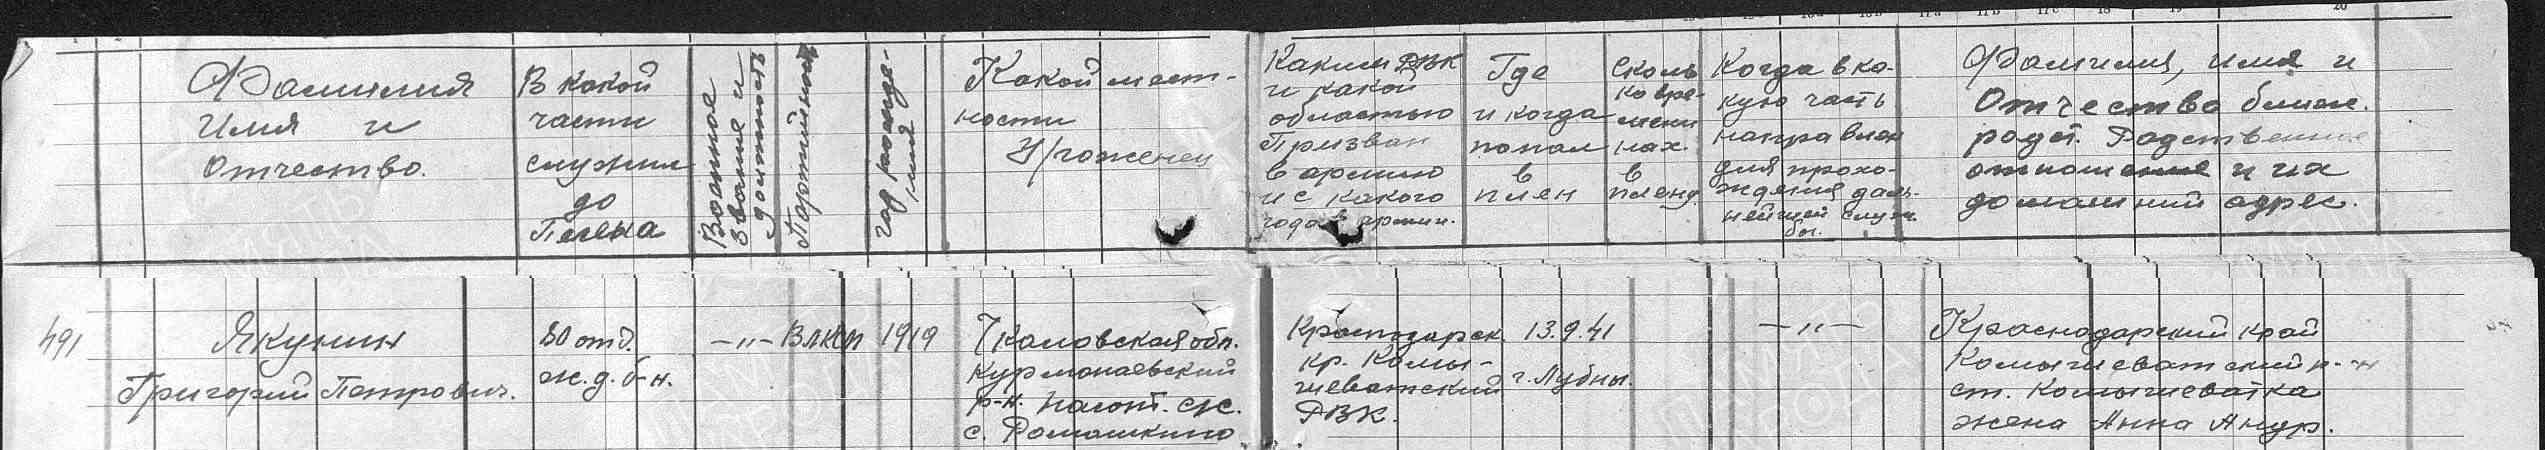 Фамилия
Имя и
Отчество.
В какой
части
служил
до
Плена
Военное
звание и
должность
Партийность
год рожде-
ния
Какой мест-
ности
Уроженец
Каким РВК
и какой
областью
Призван
в армию
и с какого
года в армии.
Где
и когда
попал
в
плен
Сколь
ко вре-
мени
нах.
в
плену
Когда в ка-
кую часть
направлен
для прохо-
ждения даль-
нейшей служ.
бы.
Фамилия, имя и
Отчество ближ.
родст. Родственное
отношение и их
домашний адрес.
491
Якунин
Григорий Петрович.
80 отд.
ж.д. б-н.
—"—
ВЛКСМ
1919
Чкаловская обл.
Курманаевский
р-н. с/с.
с. Ромашкино
Краснодарск.
кр. Камы-
шеватский
РВК.
13.9.41
г. Лубны.
—"—
Краснодарский край
Камышеватский р-н
ст. Камышеватка
жена Анна Андр.